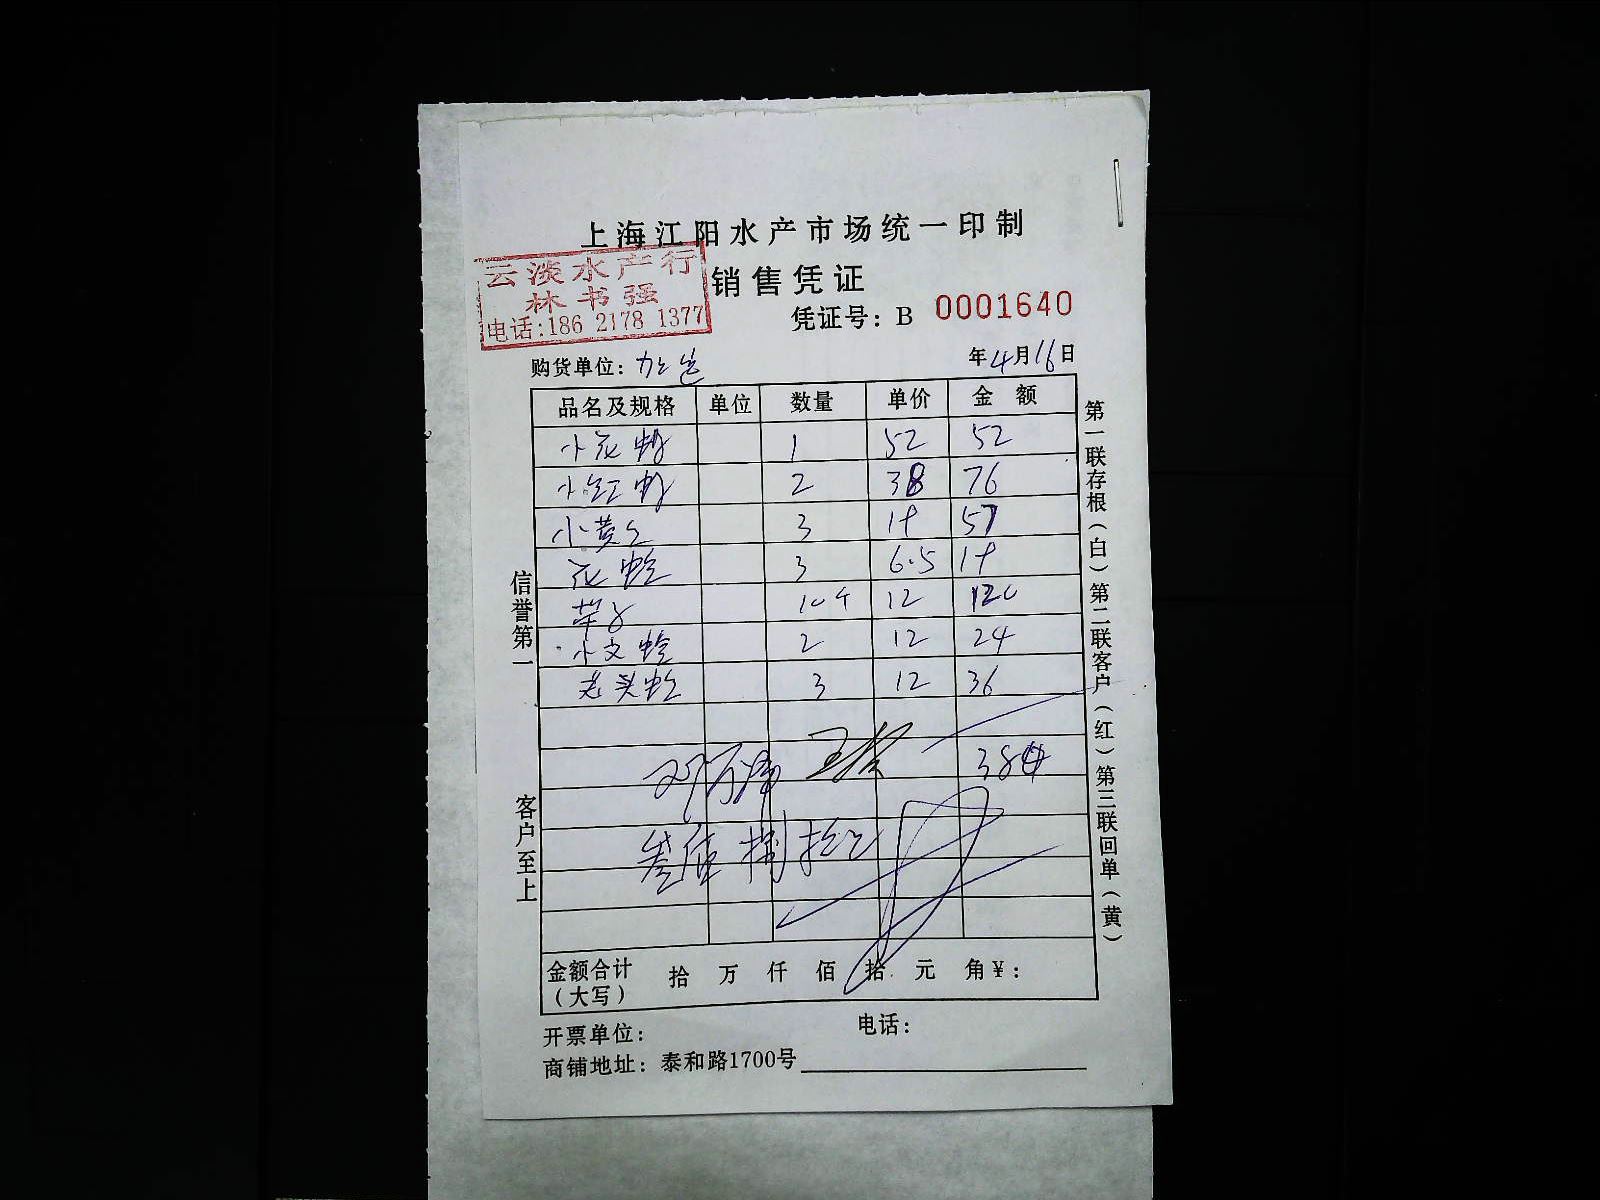 上海江阳水产市场统一印制
云淡水产行
林书强
电话:186 2178 1377
销售凭证
凭证号: B 0001640
购货单位:
年4月16日
品名及规格 单位 数量 单价 金额
小花蛤 1 52 52
小红 2 38 76
小黄 3 19 57
花蛤 3 6.5 19
带子 10个 12 120
小文蛤 2 12 24
老头蛤 3 12 36
384
叁佰捌拾
金额合计(大写) 拾 万 仟 佰 拾 元 角 ¥:
开票单位: 电话:
商铺地址: 泰和路1700号
信誉第一
客户至上
第一联存根(白)第二联客户(红)第三联回单(黄)